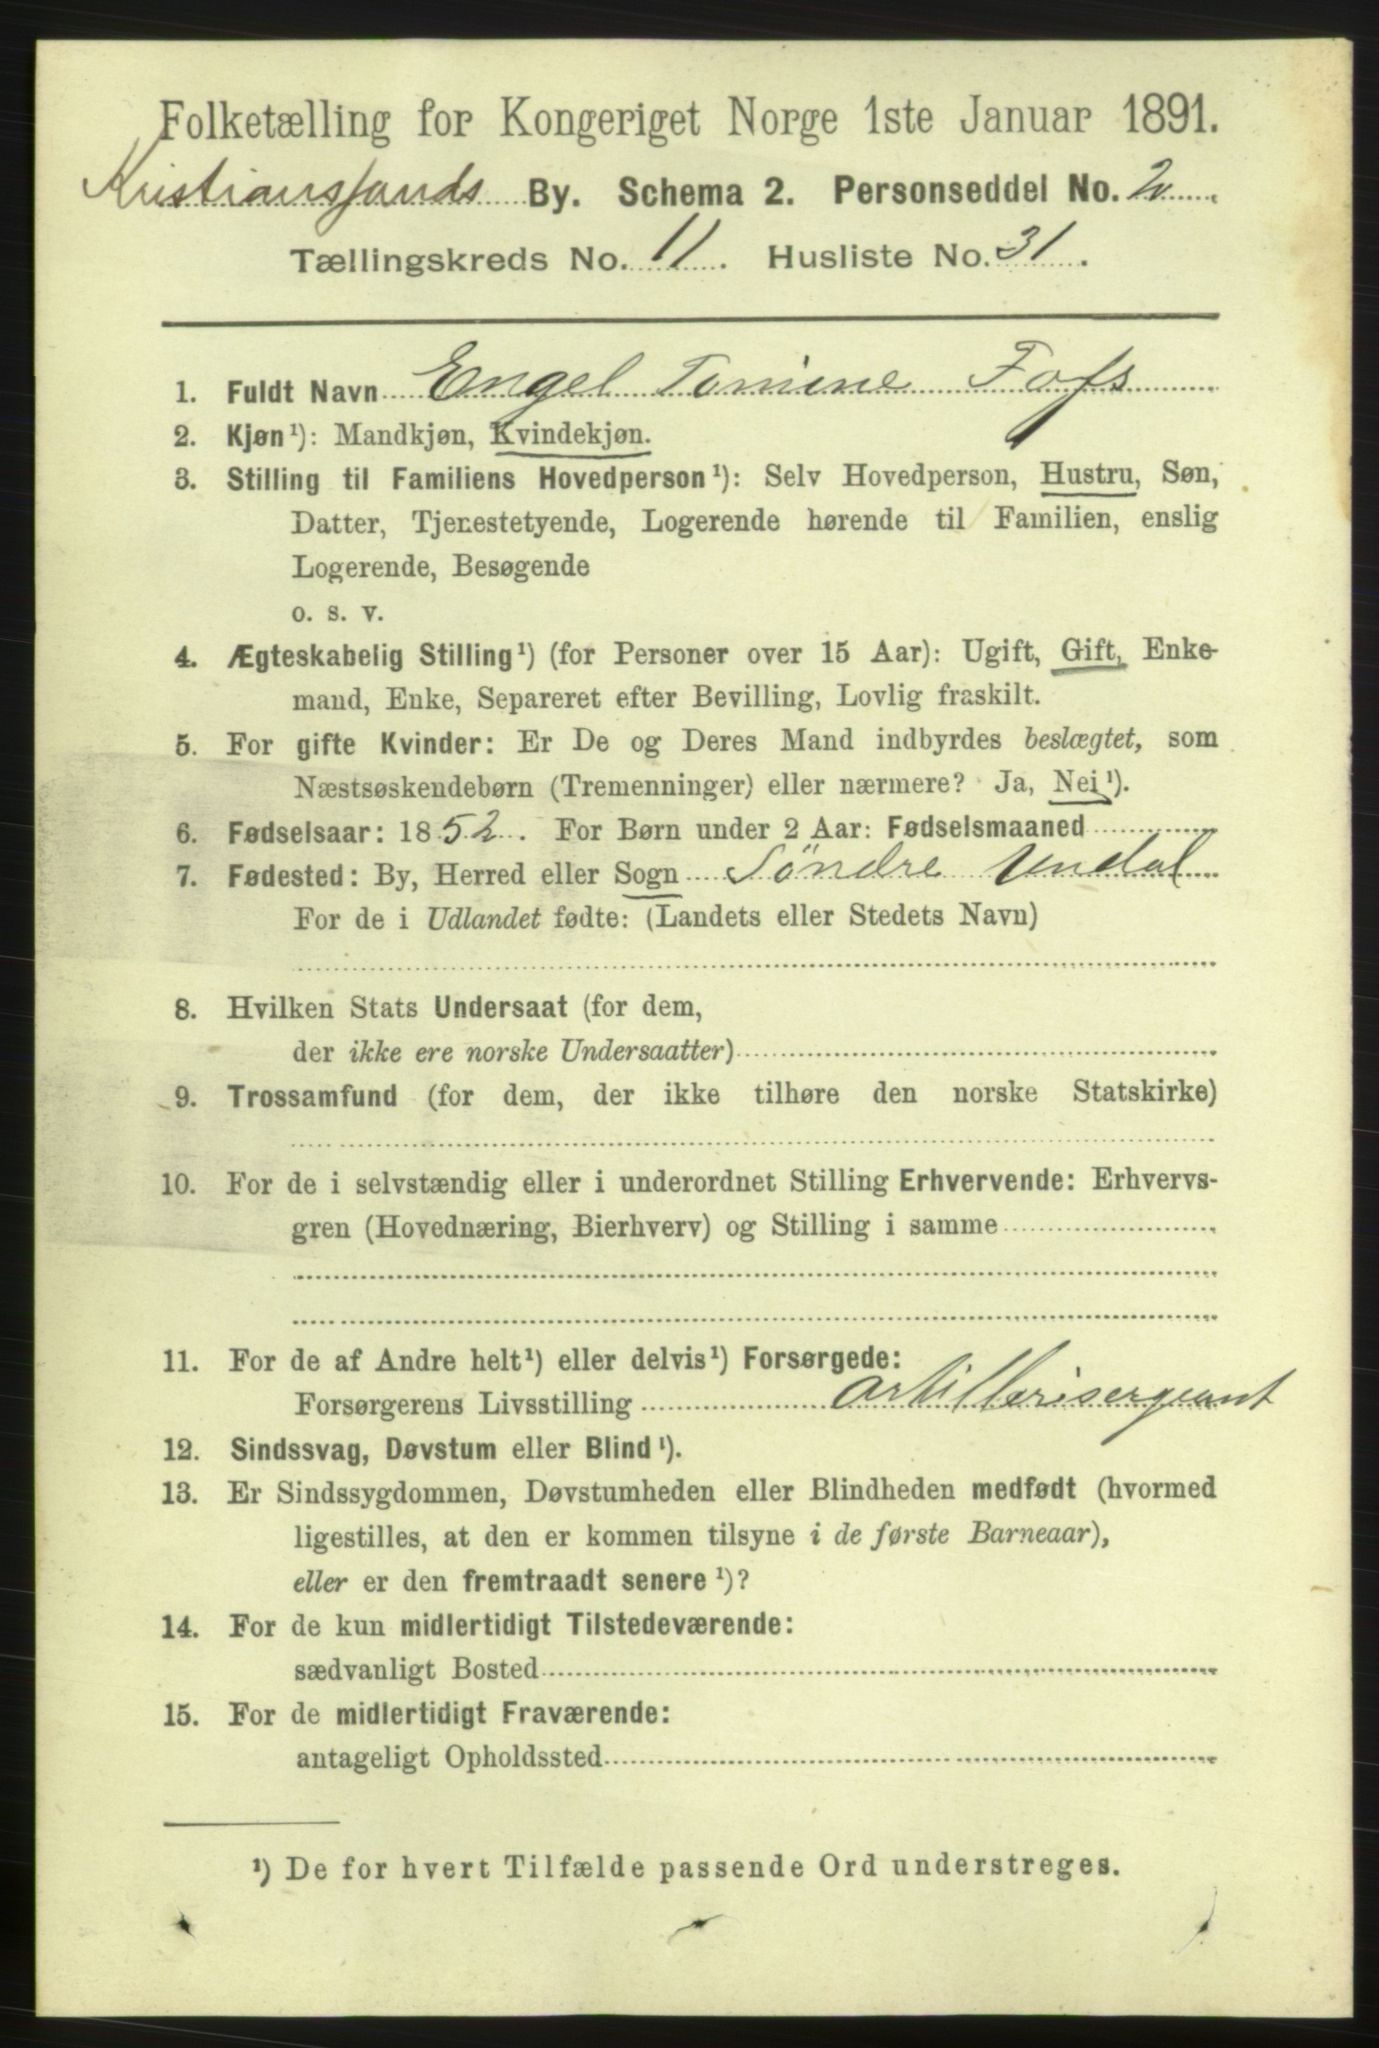 Folketælling for Kongeriget Norge 1ste Januar 1891.
Kristianssands By. Schema 2. Personseddel No. 2.
Tællingskreds No. 11. Husliste No. 31.
1. Fuldt Navn Engel Tomine Foss
2. Kjøn¹): Mandkjøn, Kvindekjøn.
3. Stilling til Familiens Hovedperson¹): Selv Hovedperson, Hustru, Søn,
Datter, Tjenestetyende, Logerende hørende til Familien, enslig
Logerende, Besøgende
o. s. v.
4. Ægteskabelig Stilling¹) (for Personer over 15 Aar): Ugift, Gift, Enke-
mand, Enke, Separeret efter Bevilling, Lovlig fraskilt.
5. For gifte Kvinder: Er De og Deres Mand indbyrdes beslægtet, som
Næstsøskendebørn (Tremenninger) eller nærmere? Ja, Nei¹).
6. Fødselsaar: 1852. For Børn under 2 Aar: Fødselsmaaned
7. Fødested: By, Herred eller Sogn Söndre Undal
For de i Udlandet fødte: (Landets eller Stedets Navn)
8. Hvilken Stats Undersaat (for dem,
der ikke ere norske Undersaatter)
9. Trossamfund (for dem, der ikke tilhøre den norske Statskirke)
10. For de i selvstændig eller i underordnet Stilling Erhvervende: Erhvervs-
gren (Hovednæring, Bierhverv) og Stilling i samme
11. For de af Andre helt¹) eller delvis¹) Forsørgede:
Forsørgerens Livsstilling Artillerisergeant
12. Sindssvag, Døvstum eller Blind¹).
13. Er Sindssygdommen, Døvstumheden eller Blindheden medfødt (hvormed
ligestilles, at den er kommen tilsyne i de første Barneaar),
eller er den fremtraadt senere¹)?
14. For de kun midlertidigt Tilstedeværende:
sædvanligt Bosted
15. For de midlertidigt Fraværende:
antageligt Opholdssted
¹) De for hvert Tilfælde passende Ord understreges.